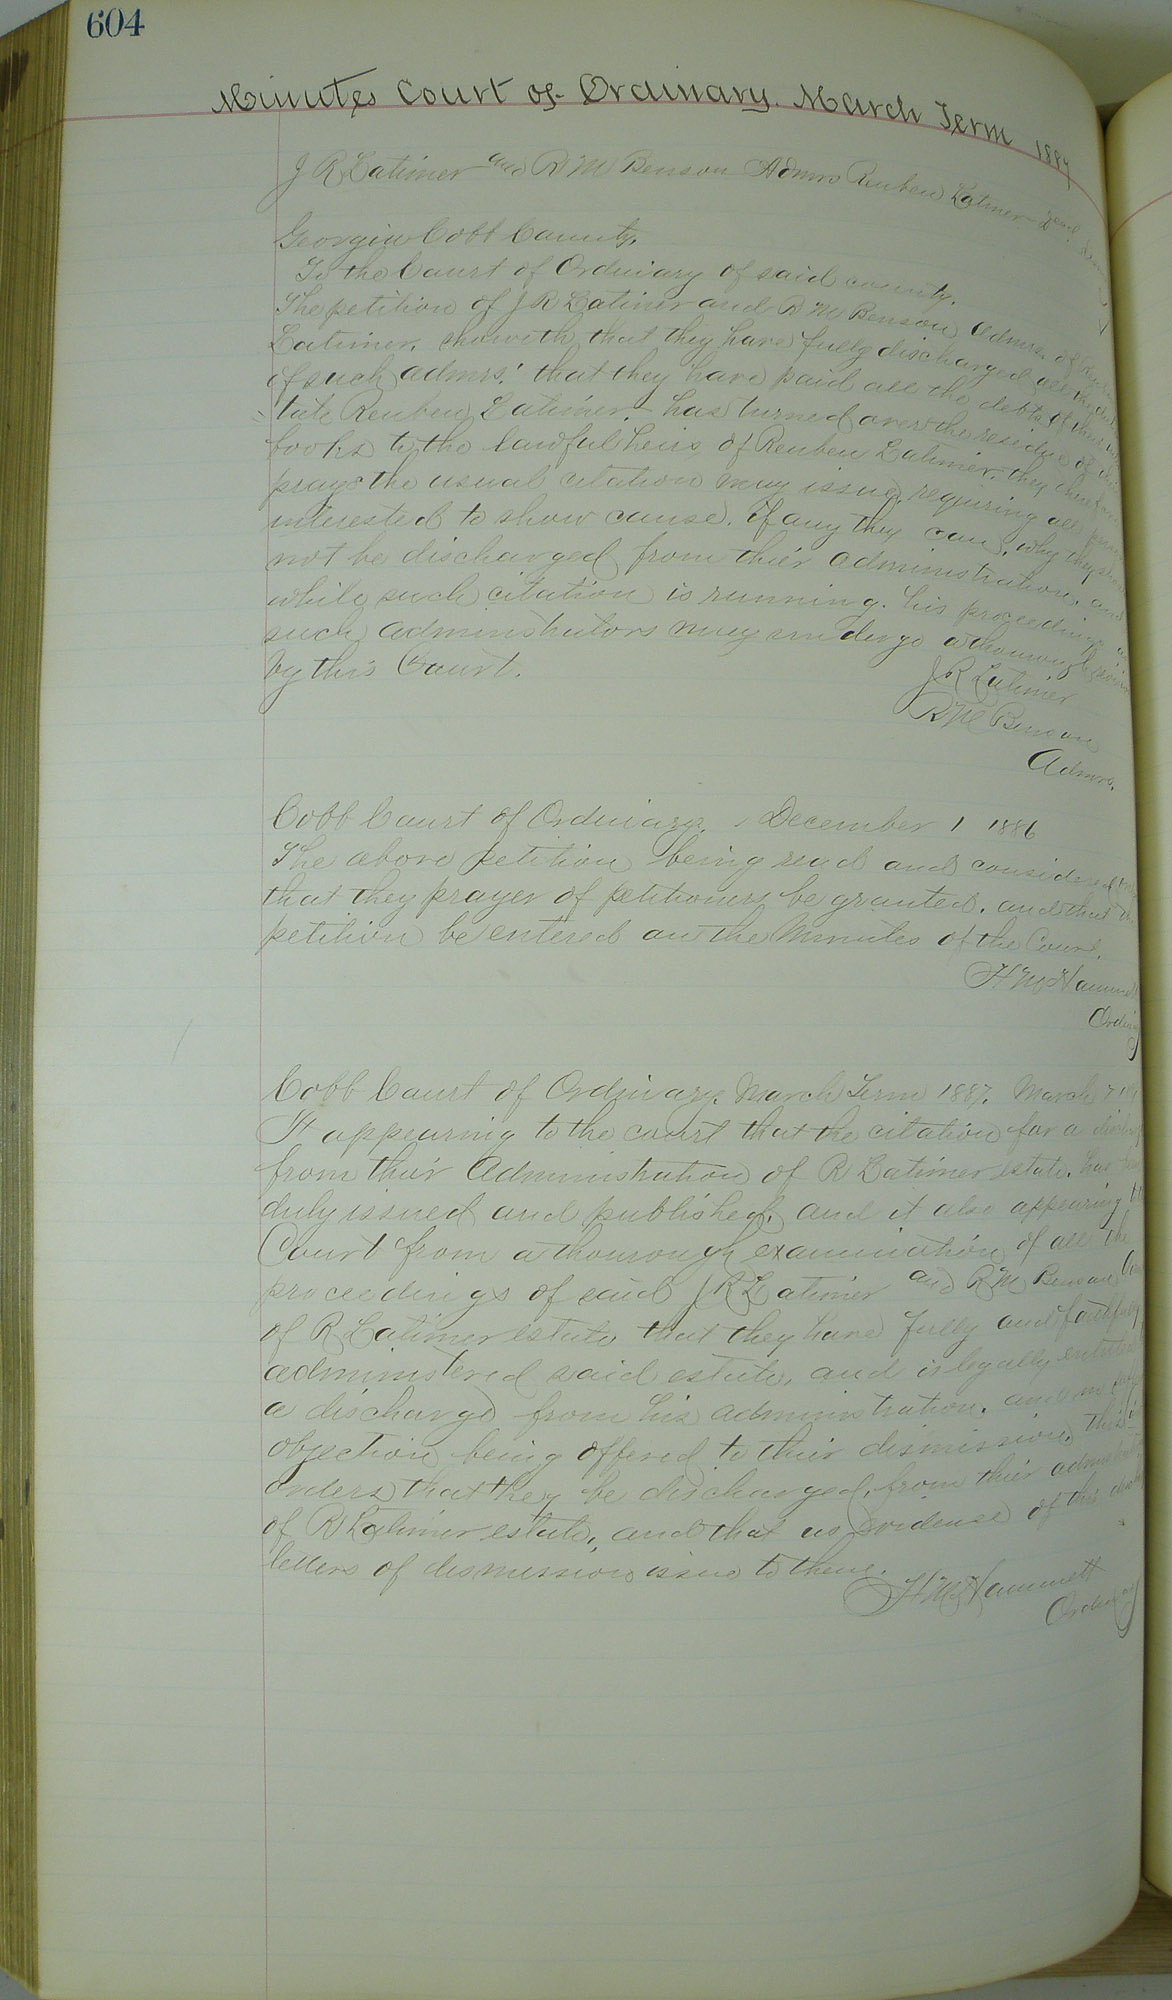 604
Minutes Court of Ordinary. March Term 1887
J R Latimer and R M Benson Admrs Reuben Latimer
Georgia Cobb County.
To the Court of Ordinary of said county.
The petition of J R Latimer and R M Benson admrs. of
Latimer. showith that they have fully discharged all the
of such admrs. that they have paid all the debts of
tate Reuben Latimer. has turned over the residue of
books to the lawful heirs of Reuben Latimer, they
prays the usual citation may issue, requiring all
interested to show cause. if any they can, why they
not be discharged from their administration, and
while such citation is running. his proceedings
such administrators may undergo a thourough
by this Court.
J R Latimer
R M Benson
Admrs.
Cobb Court of Ordinary, December 1 1886
The above petition being read and considered
that they prayer of petitioners be granted. and that
petition be entered on the Minutes of the Court.
H M Hammett
Cobb Court of Ordinary. March Term 1887. March 7
It appearing to the court that the citation for a
from their Administration of R Latimer estate, has
duly issued and published, and it also appearing
Court from a thourough examination of all the
proceedings of said J R Latimer and R M Benson
of R Latimer estate that they have fully and
administered said estate, and is legally
a discharge from his administration. and
objection being offered to their dismission, This
orders that they be discharged, from their
of R Latimer estate, and that as evidense of this
letters of dismission issue to them.
H M Hammett
Ordinary